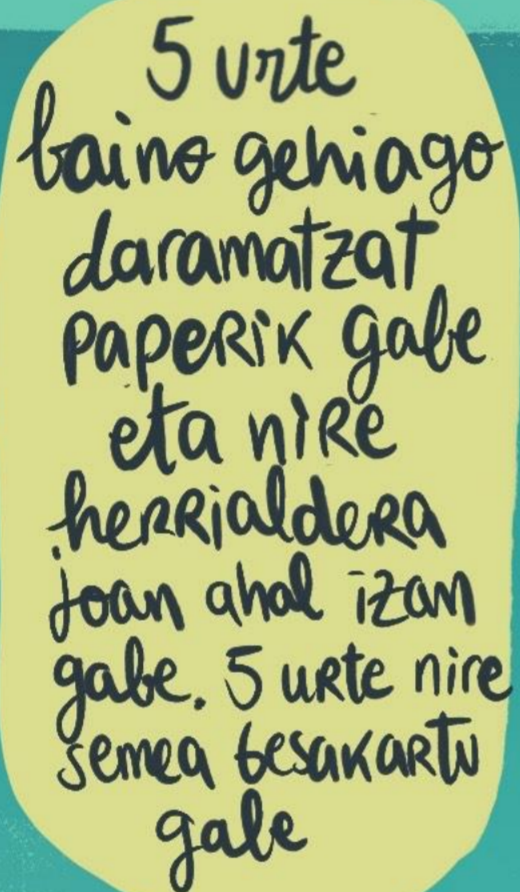 5 urte
baino gehiago
daramatzat
paperik gabe
eta nire
herrialdera
joan ahal izan
gabe. 5 urte nire
semea besakartu
gabe